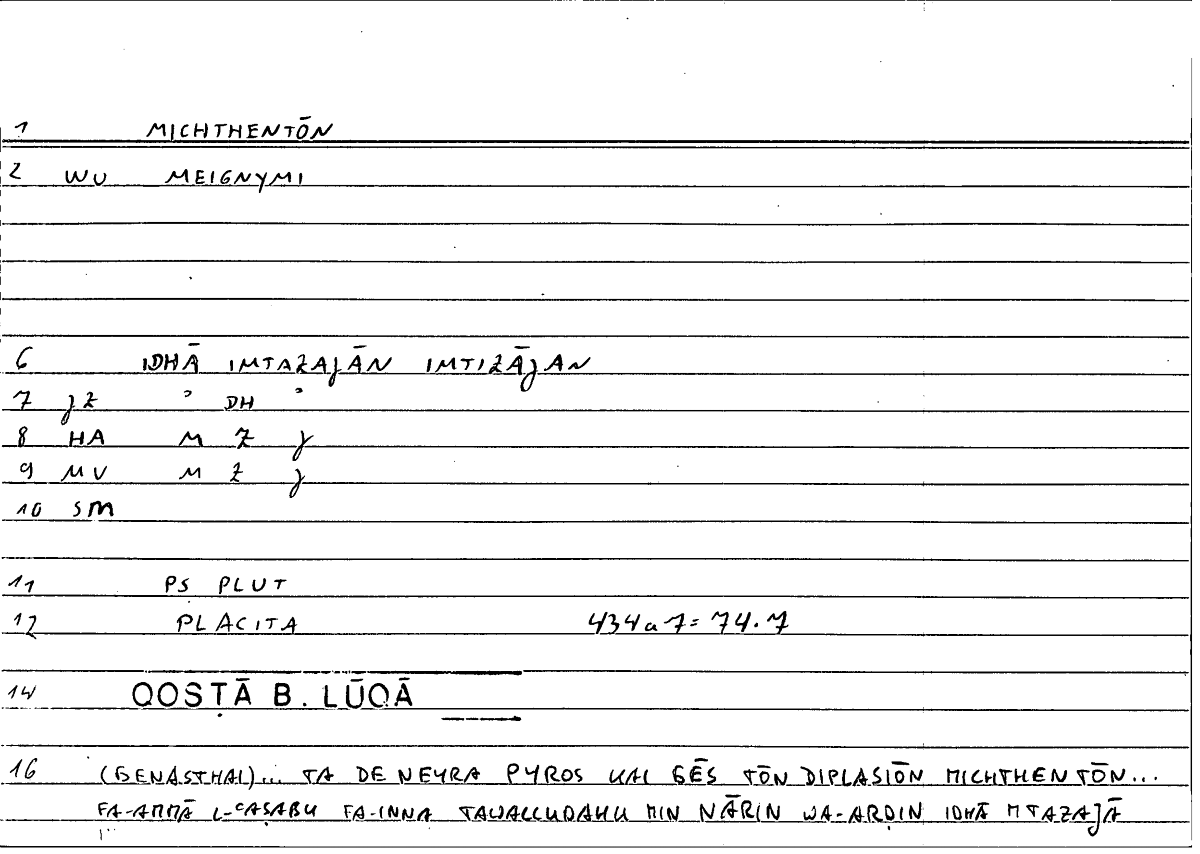 1 MICHTHENTŌN
2 WU MEIGNYMI
6 IDHĀ IMTAZAJĀN IMTIZĀJAN
7 JZ ʾ DH ʾ
8 HA M Z J
9 MV M Z J
10 SM
11 PS PLUT
12 PLACITA 434a7=74.7
14 QOSṬĀ B. LŪQĀ
16 (GENÁSTHAI)... TA DE NEYRA PYROS KAI GĒS TŌN DIPLASIŌN MICHTHENTŌN...
FA-AMMĀ L-ʿAṢABU FA-INNA TAWALLUDAHU MIN NĀRIN WA-ARḌIN IDHĀ MTAZAJĀ